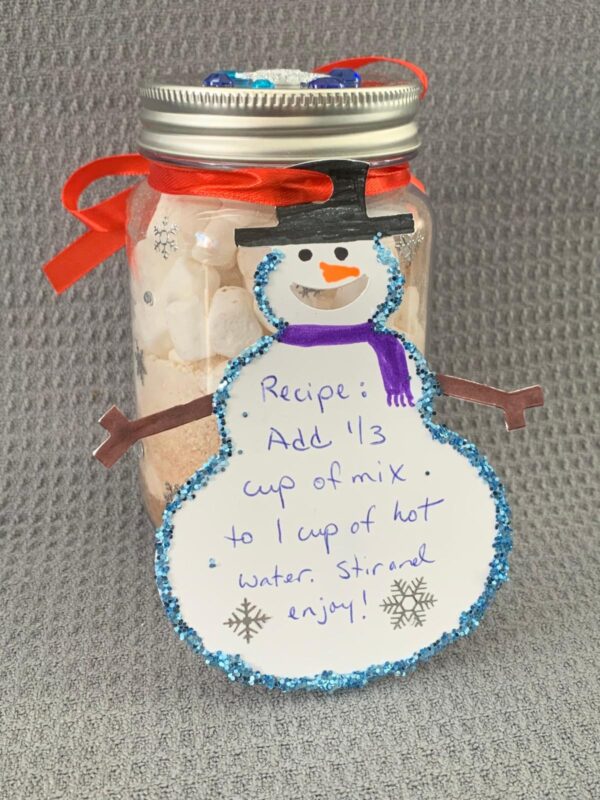 Recipe:
Add 1/3
cup of mix
to 1 cup of hot
water. Stir and
enjoy!